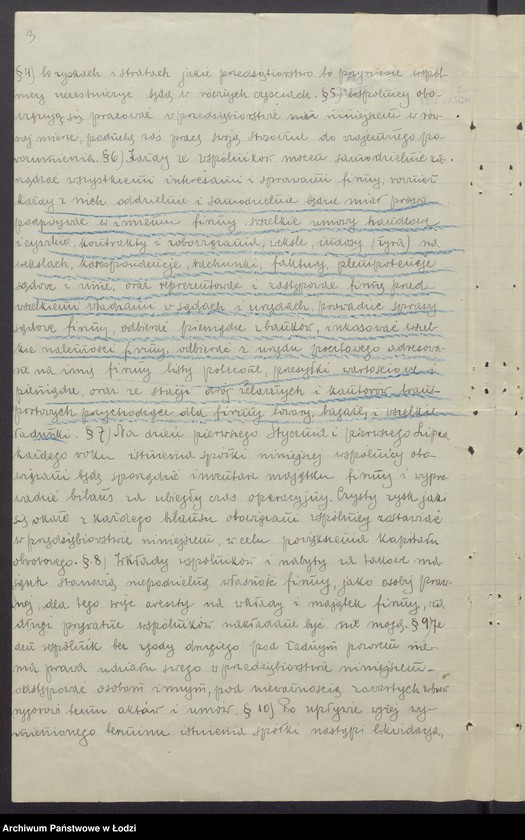 3
§ 4) W zyskach i stratach jakie przedsiębiorstwo to przyniesie wspól-
nicy uczestniczyć będą w równych częściach. § 5) Wspólnicy obo-
wiązują się pracować w przedsiębiorstwie niniejszem w rów-
nej mierze, podzielą zaś pracę swoją stosownie do wzajemnego po-
rozumienia. § 6) Każdy ze wspólników mocen samodzielnie za-
rządzać wszystkiemi interesami i sprawami firmy, również
każdy z nich oddzielnie i samodzielnie będzie miał prawo
podpisywać w imieniu firmy wszelkie umowy handlowe
i cywilne, kontrakty i zobowiązania, weksle, indosy (żyra) na
wekslach, korespondencje, rachunki, faktury, plenipotencje
sądowe i inne, oraz reprezentować i zastępować firmę przed
wszelkiemi władzami w sądach i urzędach, prowadzić sprawy
sądowe firmy, odbierać pieniądze z banków, inkasować wszel-
kie należności firmy, odbierać z urzędu pocztowego adresowa-
ne na imię firmy listy polecone, przesyłki wartościowe i
pieniądze, oraz ze stacji dróg żelaznych i kantorów trans-
portowych przychodzące dla firmy towary, bagaże i wszelkie
ładunki. § 7) Na dzień pierwszego Stycznia i pierwszego Lipca
każdego roku istnienia spółki niniejszej wspólnicy obo-
wiązani będą sporządzić inwentarz majątku firmy i wypro-
wadzić bilans za ubiegły czas operacyjny. Czysty zysk jaki
się okaże z każdego bilansu obowiązani wspólnicy zostawiać
w przedsiębiorstwie niniejszem, w celu powiększenia kapitału
obrotowego. § 8) Wkłady wspólników i nabyty za takowe ma-
jątek stanowią niepodzielną własność firmy, jako osoby praw-
nej, dla tego więc areszty na wkłady i majątek firmy, za
długi prywatne wspólników nakładane być nie mogą. § 9) Je
den wspólnik bez zgody drugiego pod żadnym pozorem nie-
ma prawa udziału swego w przedsiębiorstwie niniejszem
odstępować osobom innym, pod nieważnością zawartych wbrew
wygorowi temu aktów i umów. § 10) Po upływie wyżej wy-
mienionego terminu istnienia spółki nastąpi likwidacja,
Archiwum Państwowe w Łodzi